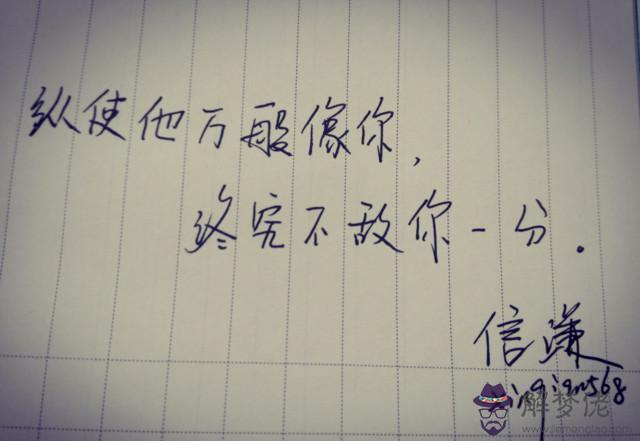 纵使他万般像你，
终究不敌你一分．
信谦
解梦佬
www.jiemenglao.com